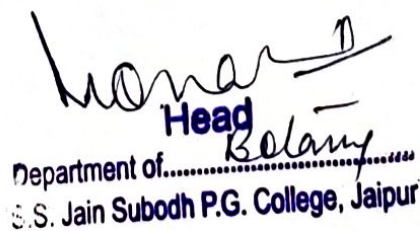 Head
Department of.....Botany.....
S.S. Jain Subodh P.G. College, Jaipur